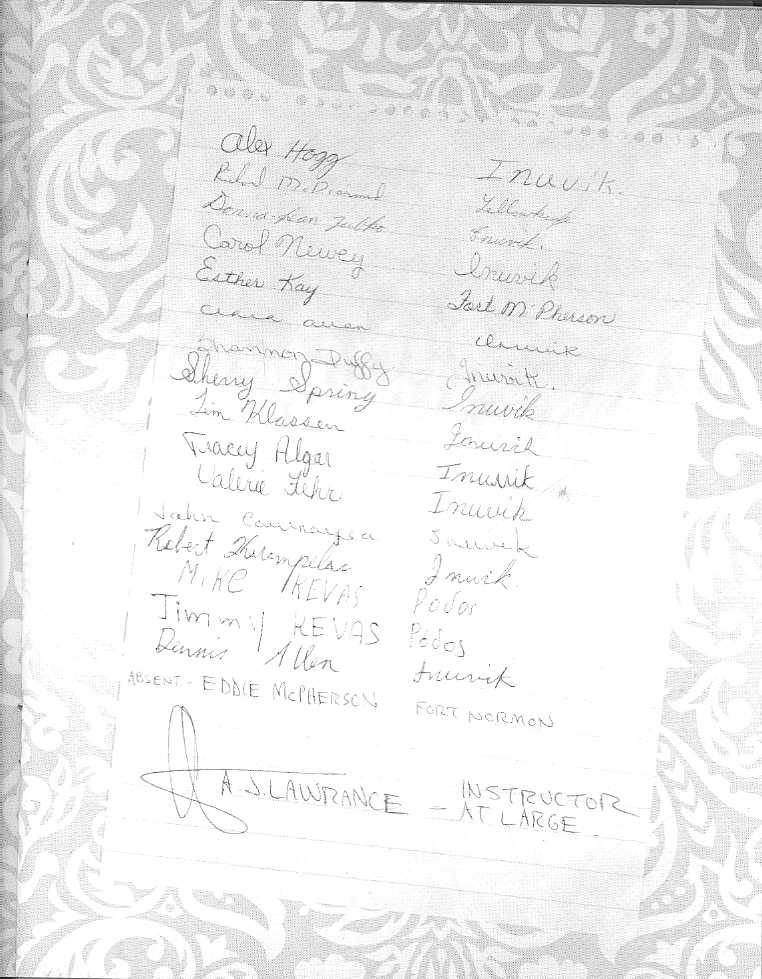 Alex Hogg Inuvik.
Donna-Jean Inuvik.
Carol Newey Inuvik
Esther Kay Fort McPherson
Clara Allen Inuvik
Shannon Duffy Inuvik.
Sherry Spring Inuvik
Klassen Inuvik
Tracey Algar Inuvik
Valerie Fehr Inuvik
John Inuvik
Robert Inuvik.
MIKE KEVAS Podos
Jimmy KEVAS Podos
Dennis Allen Inuvik
ABSENT - EDDIE McPHERSON FORT NORMON
A.J. LAWRANCE - INSTRUCTOR
AT LARGE